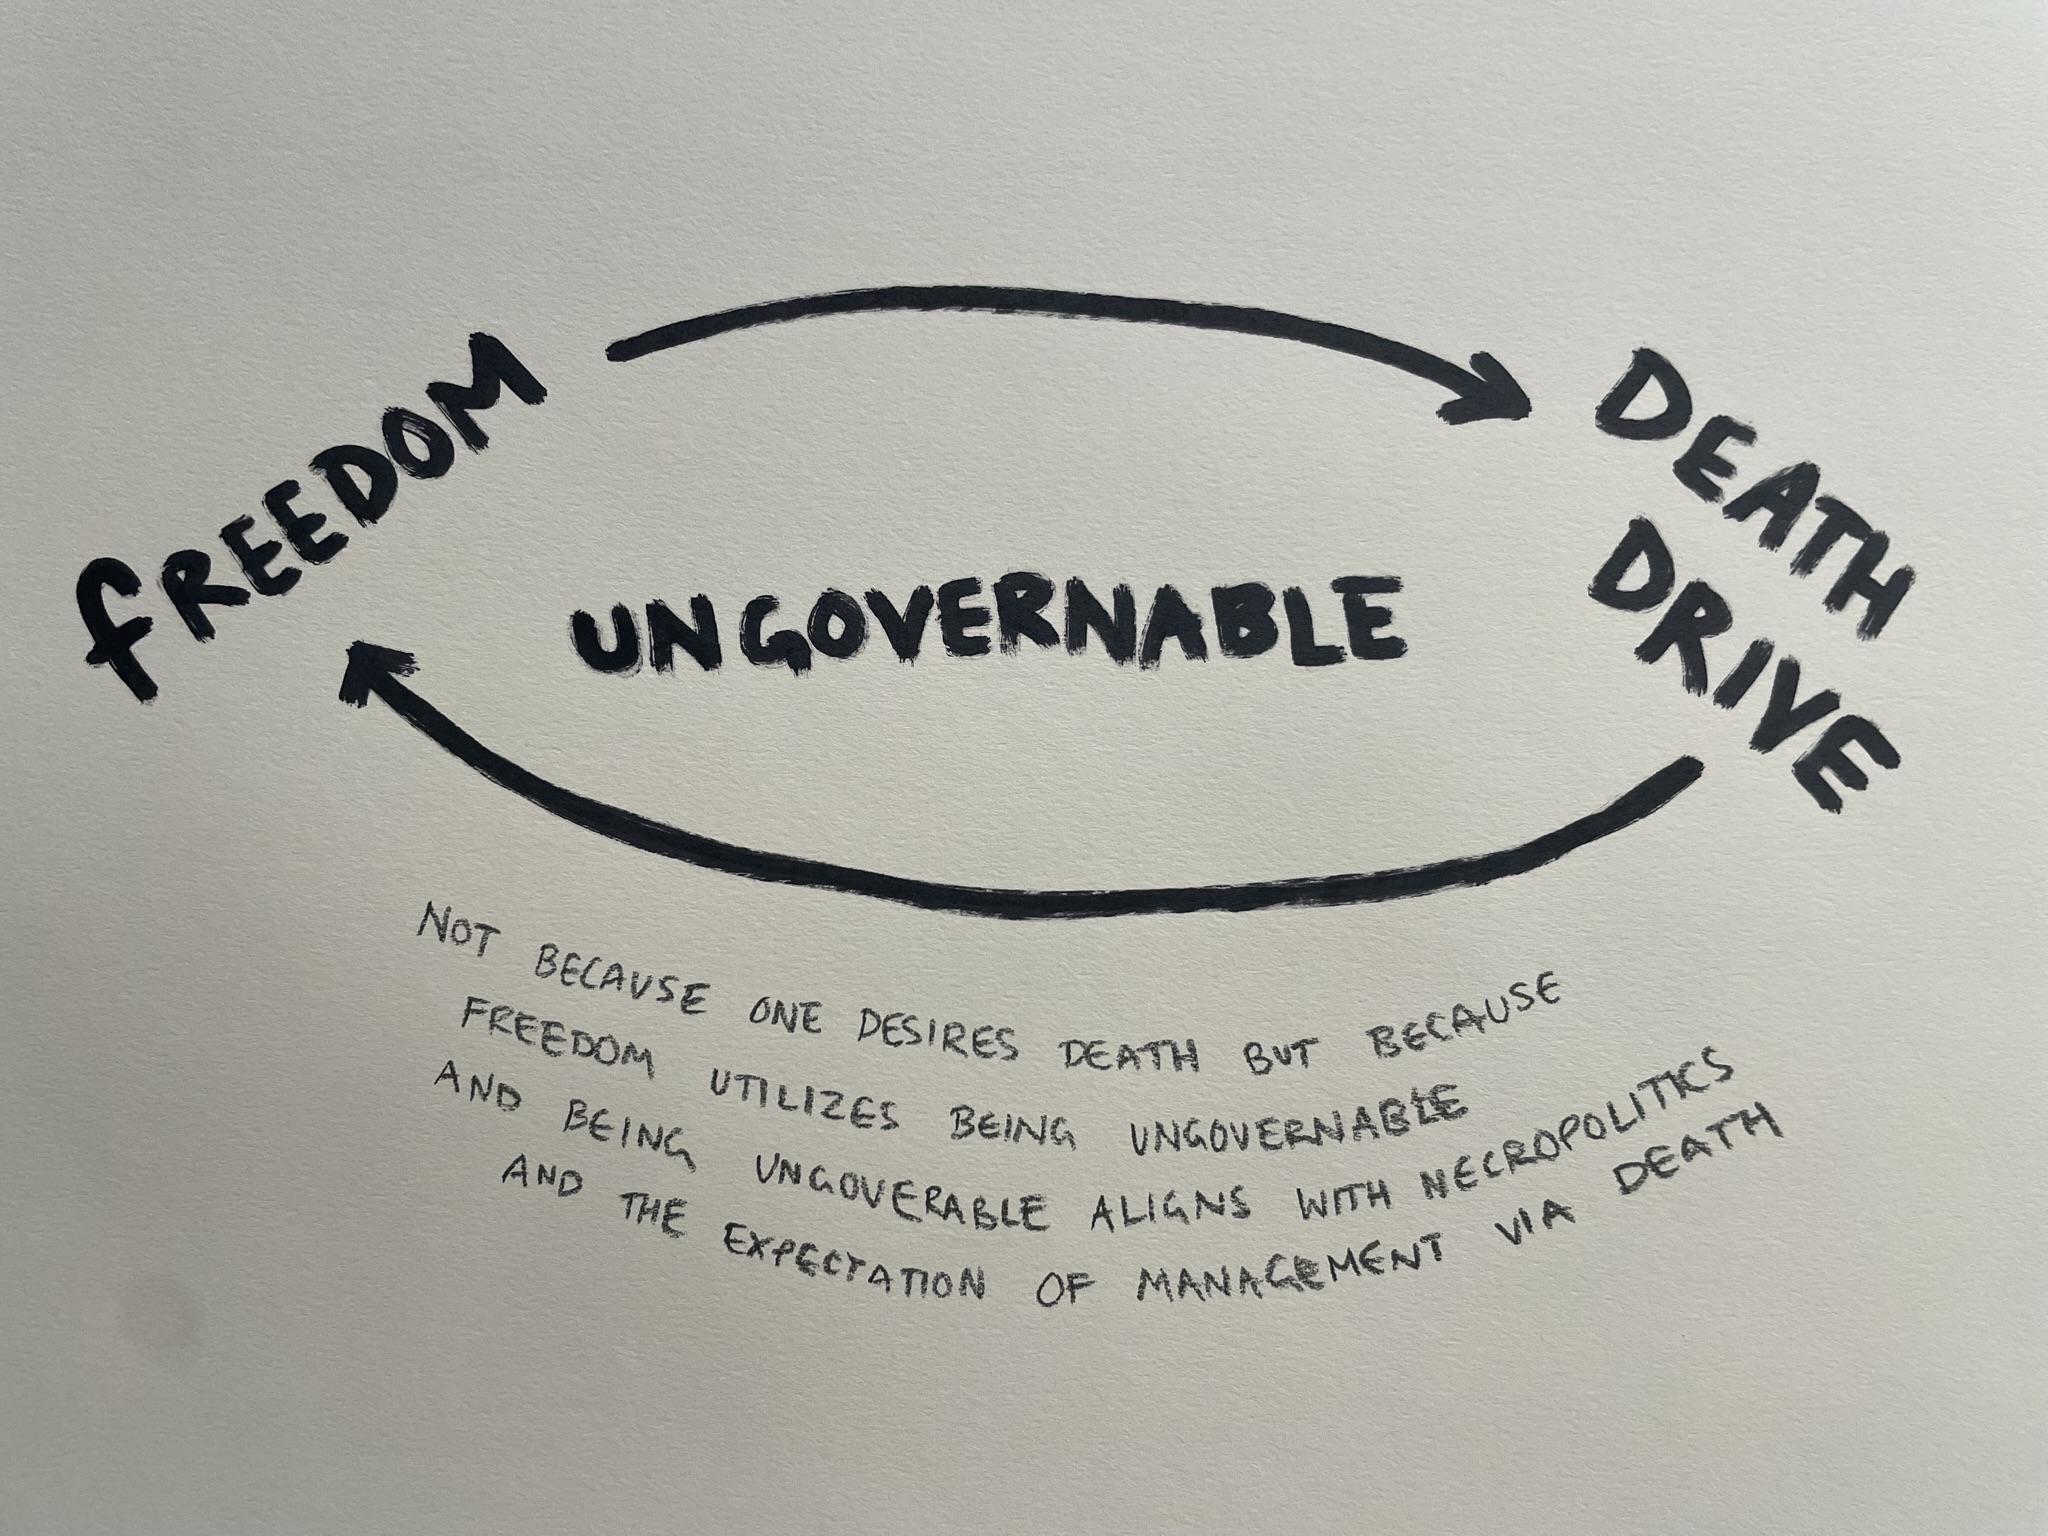 fREEDOM
DEATH
DRIVE
UNGOVERNABLE
NOT BECAUSE ONE DESIRES DEATH BUT BECAUSE
FREEDOM UTILIZES BEING UNGOVERNABLE
AND BEING UNGOVERABLE ALIGNS WITH NECROPOLITICS
AND THE EXPECTATION OF MANAGEMENT VIA DEATH